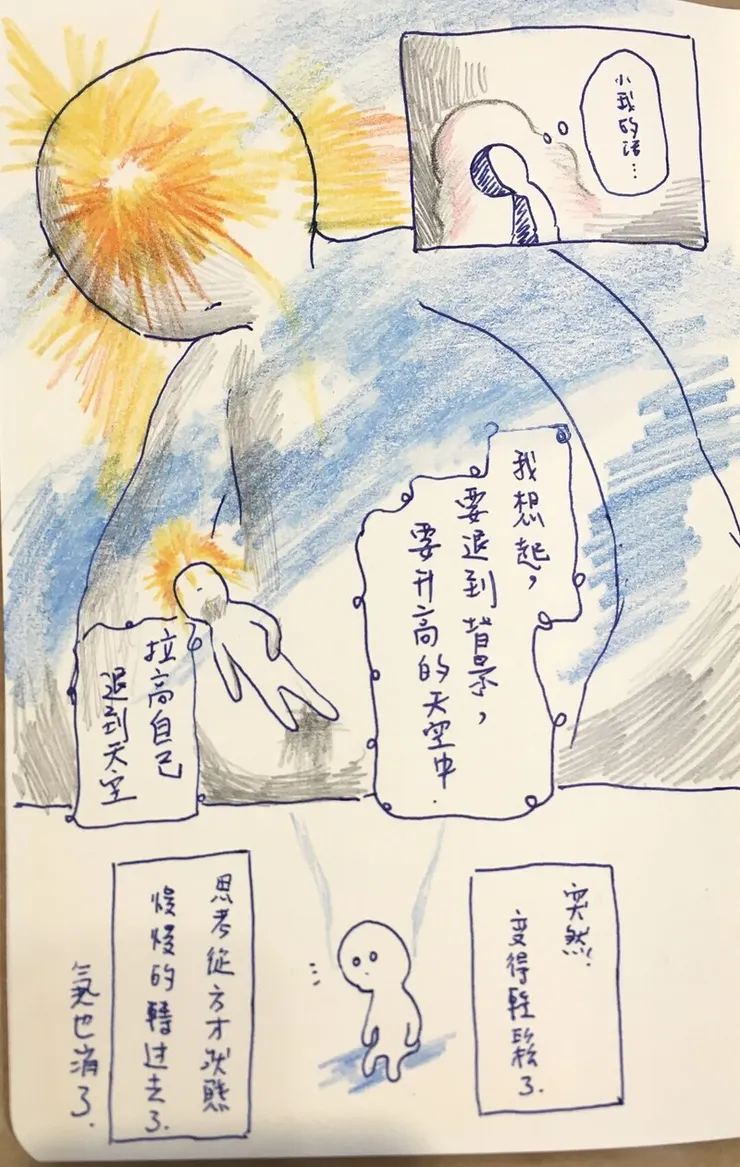 小我的話…
我想起，
要退到背景，
要升高的天空中.
拉高自己
退到天空
突然！
變得輕鬆了.
思考從方才狀態
慢慢的轉过去了.
氣也消了.